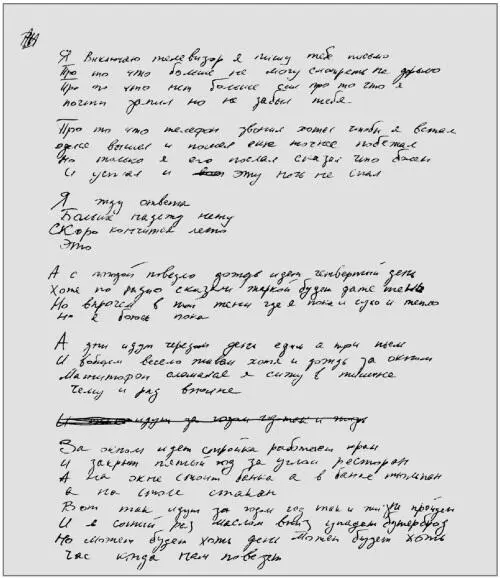 Я Включаю телевизор я пишу тебе письмо
Про то что больше не могу смотреть на дерьмо
Про то что нет больше сил про то что я
почти запил но не забыл тебя
Про то что телефон звонил хотел чтобы я встал
оделся вышел и пошел ещё точнее побежал
Но только я его послал сказал что болен
И устал и эту ночь не спал
Я жду ответа
Больше надежд нету
Скоро кончится лето
Это
А с погодой повезло дождь идет четвертый день
Хотя по радио сказали жаркой будет даже тень
Но впрочем в той тени где я пока и сухо и тепло
Но я боюсь пока
А дни идут чередом день едим а три пьем
И вобщем весело живем хотя и дождь за окном
Магнитофон сломался я сижу в тишине
Чему и рад вполне
идут за годом год так и жизнь
За окном идет стройка работает кран
И закрыт пятый год за углом ресторан
А на окне стоит банка а в банке тюльпан
а на столе стакан
Вот так идут за годом год так и жизнь пройдет
И в сотый раз маслом вниз упадет бутерброд
Но может будет хоть день может будет хоть
час когда нам повезет